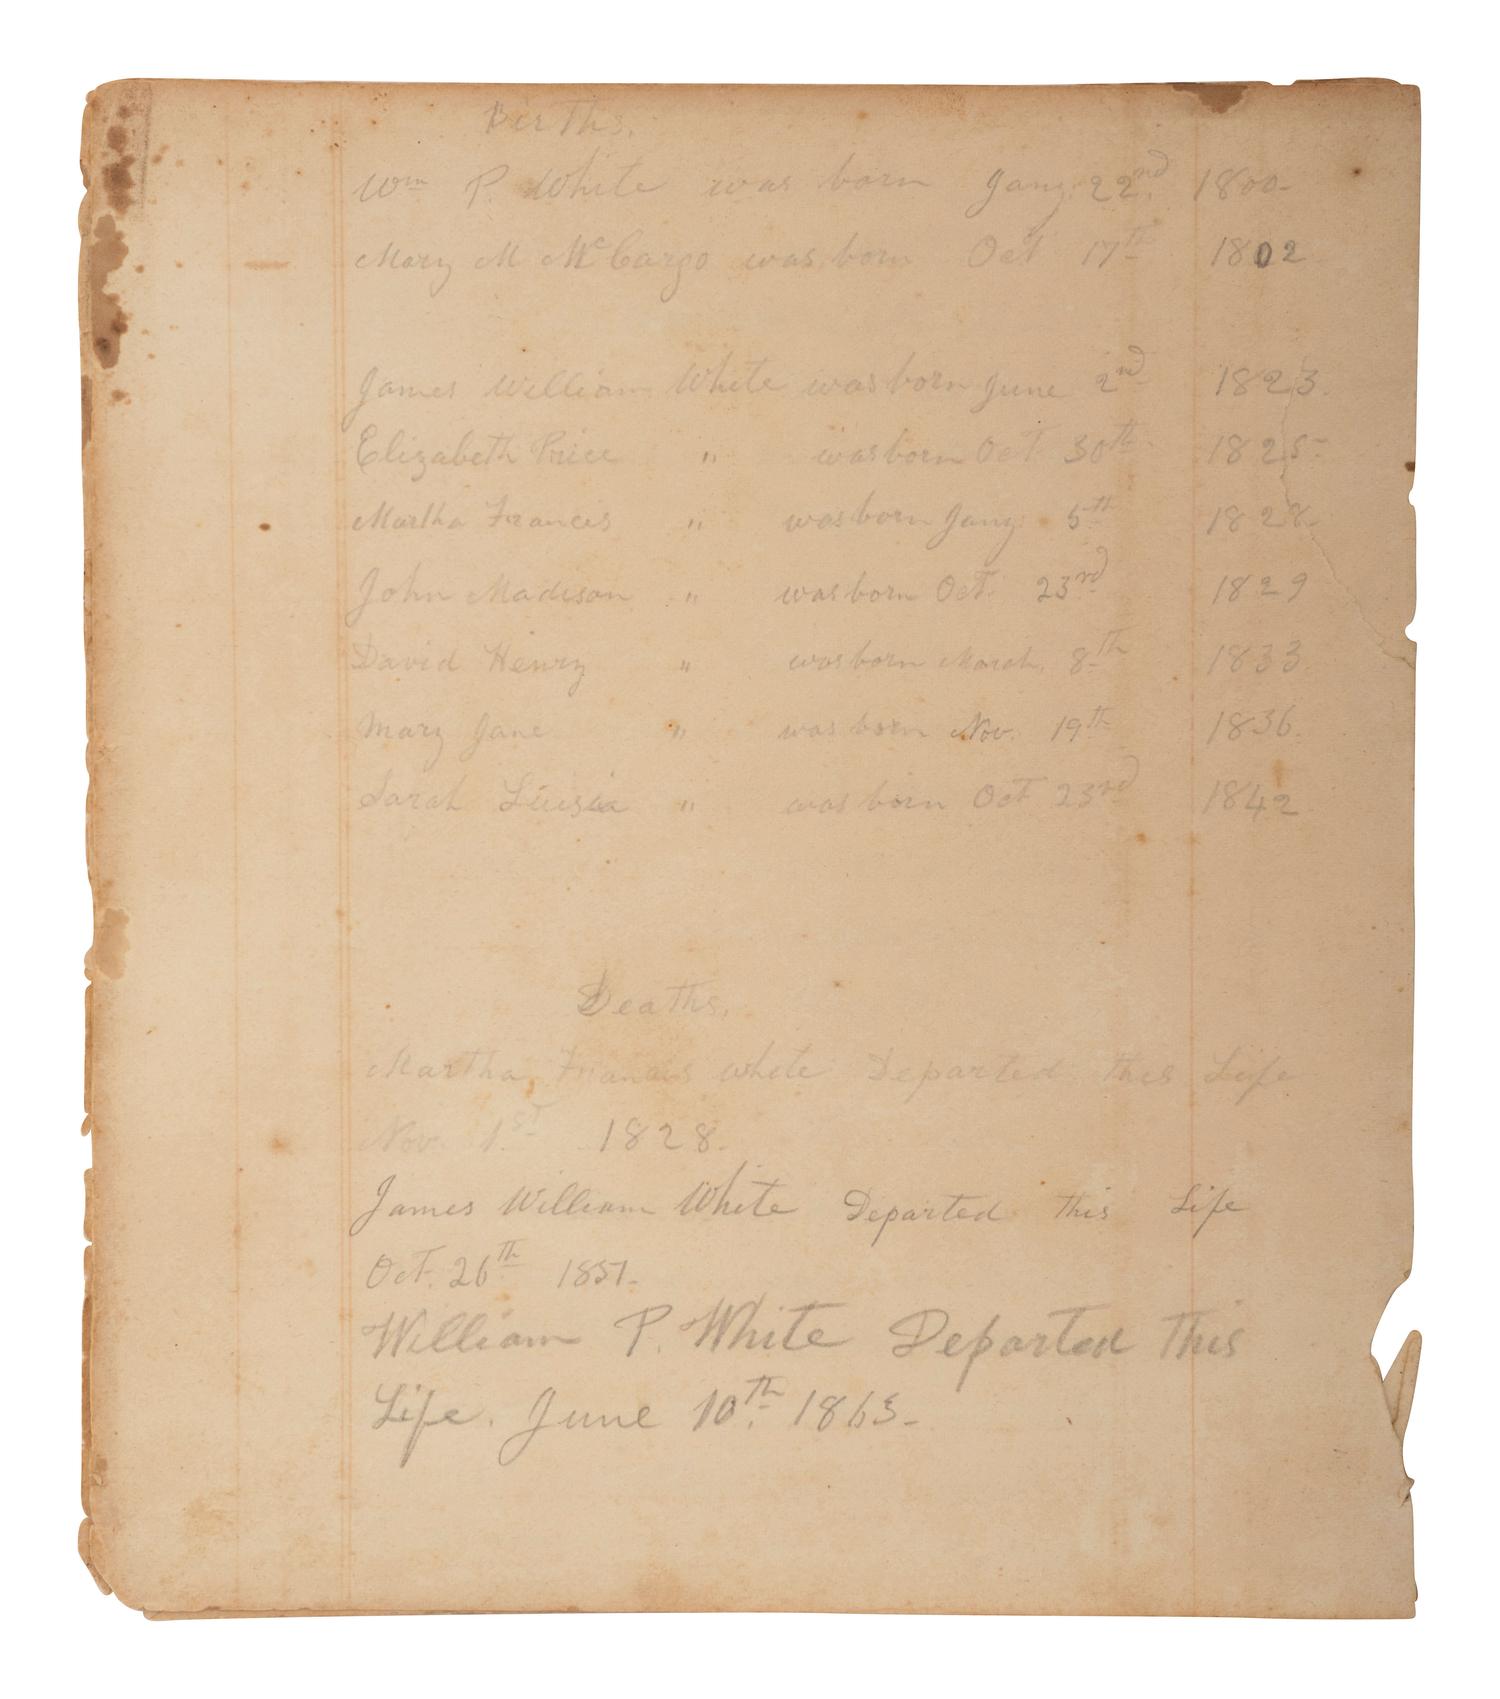 Births.
Wm P. White was born Jany. 22nd. 1800-
Mary M McCargo was born Oct 17th 1802
James William White was born June 2nd 1823.
Elizabeth Price " was born Oct 30th 1825-
Martha Frances " was born Jany 5th 1828-
John Madison " was born Oct. 23rd 1829
David Henry " was born March 8th 1833
Mary Jane " was born Nov. 19th 1836.
Sarah " was born Oct 23rd 1842
Deaths.
Martha Frances White Departed this Life
Nov. 1st 1828.
James William White Departed this Life
Oct. 26th 1851.
William P. White Departed This
Life. June 10th. 1863-